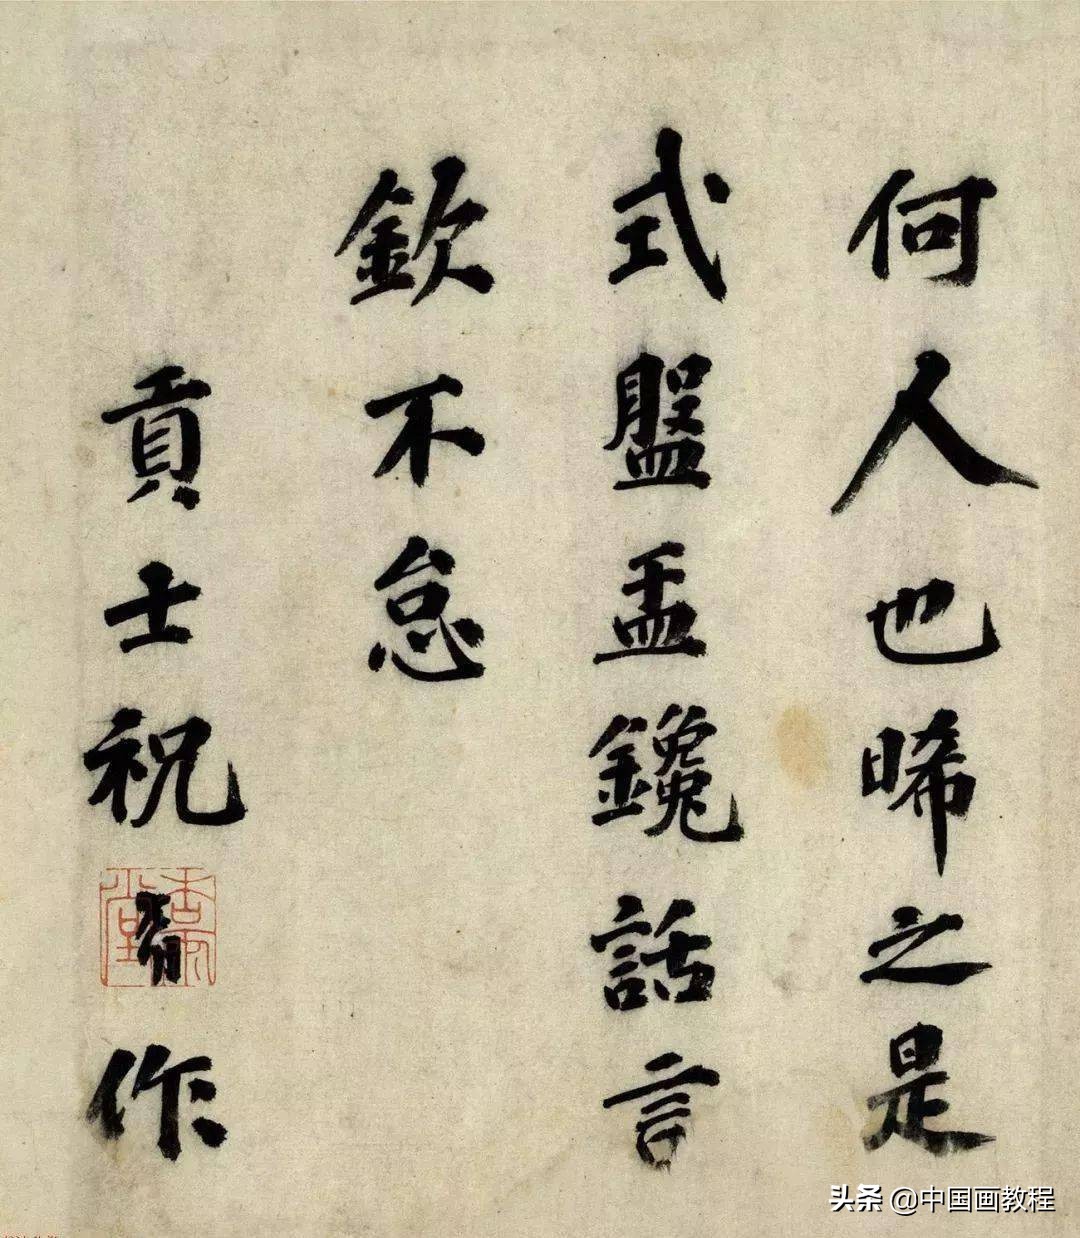 何人也晞之是
式盤盂鑱話言
欽不怠
貢士祝
作
头条 @中国画教程